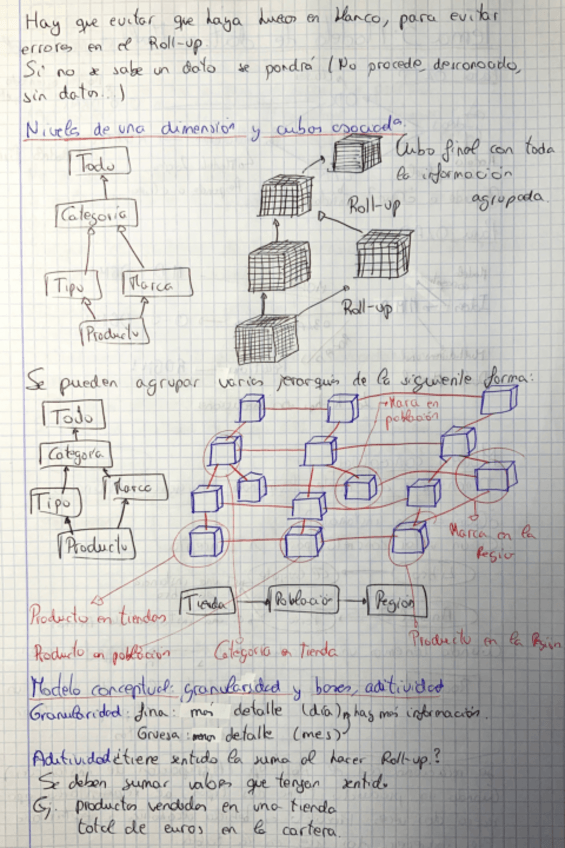 Hay que evitar que haya huecos en blanco, para evitar
errores en el Roll-up.
Si no se sabe un dato se pondrá (No procede, desconocido,
sin datos...)
Niveles de una dimensión y cubos asociada.
Todo
Categoría
Tipo
Marca
Producto
Cubo final con toda
la información
agrupada.
Roll-up
Roll-up
Se pueden agrupar varias jerarquis de la siguiente forma:
Todo
Categora
Tipo
Marca
Producto
Marca en
población
Marca en la
Region
Tienda
Población
Región
Producto en tiendas
Producto en población
Categoria en tienda
Producto en la Región
Modelo conceptual: granularidad y bases, aditividad
Granularidad: fina: más detalle (día), hay más información.
Gruesa: menos detalle (mes)
Aditividad ¿tiene sentido la suma al hacer Roll-up?
Se deben sumar valores que tengan sentido
Ej. productos vendidos en una tienda
total de euros en la cartera.